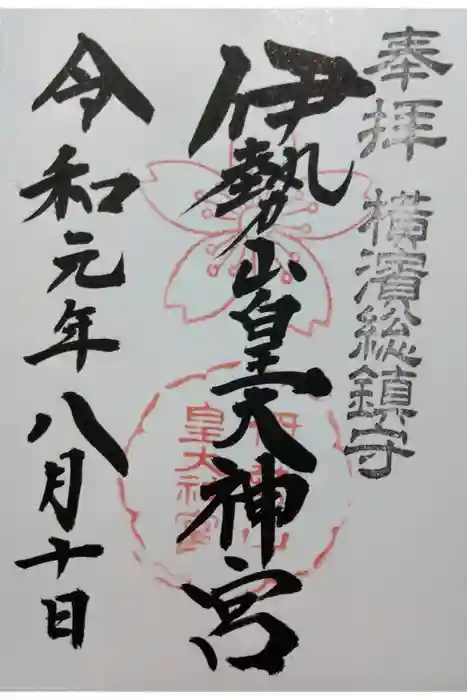 奉拝 横濱総鎮守
伊勢山皇大神宮
伊勢山
皇大神宮
令和元年八月十日